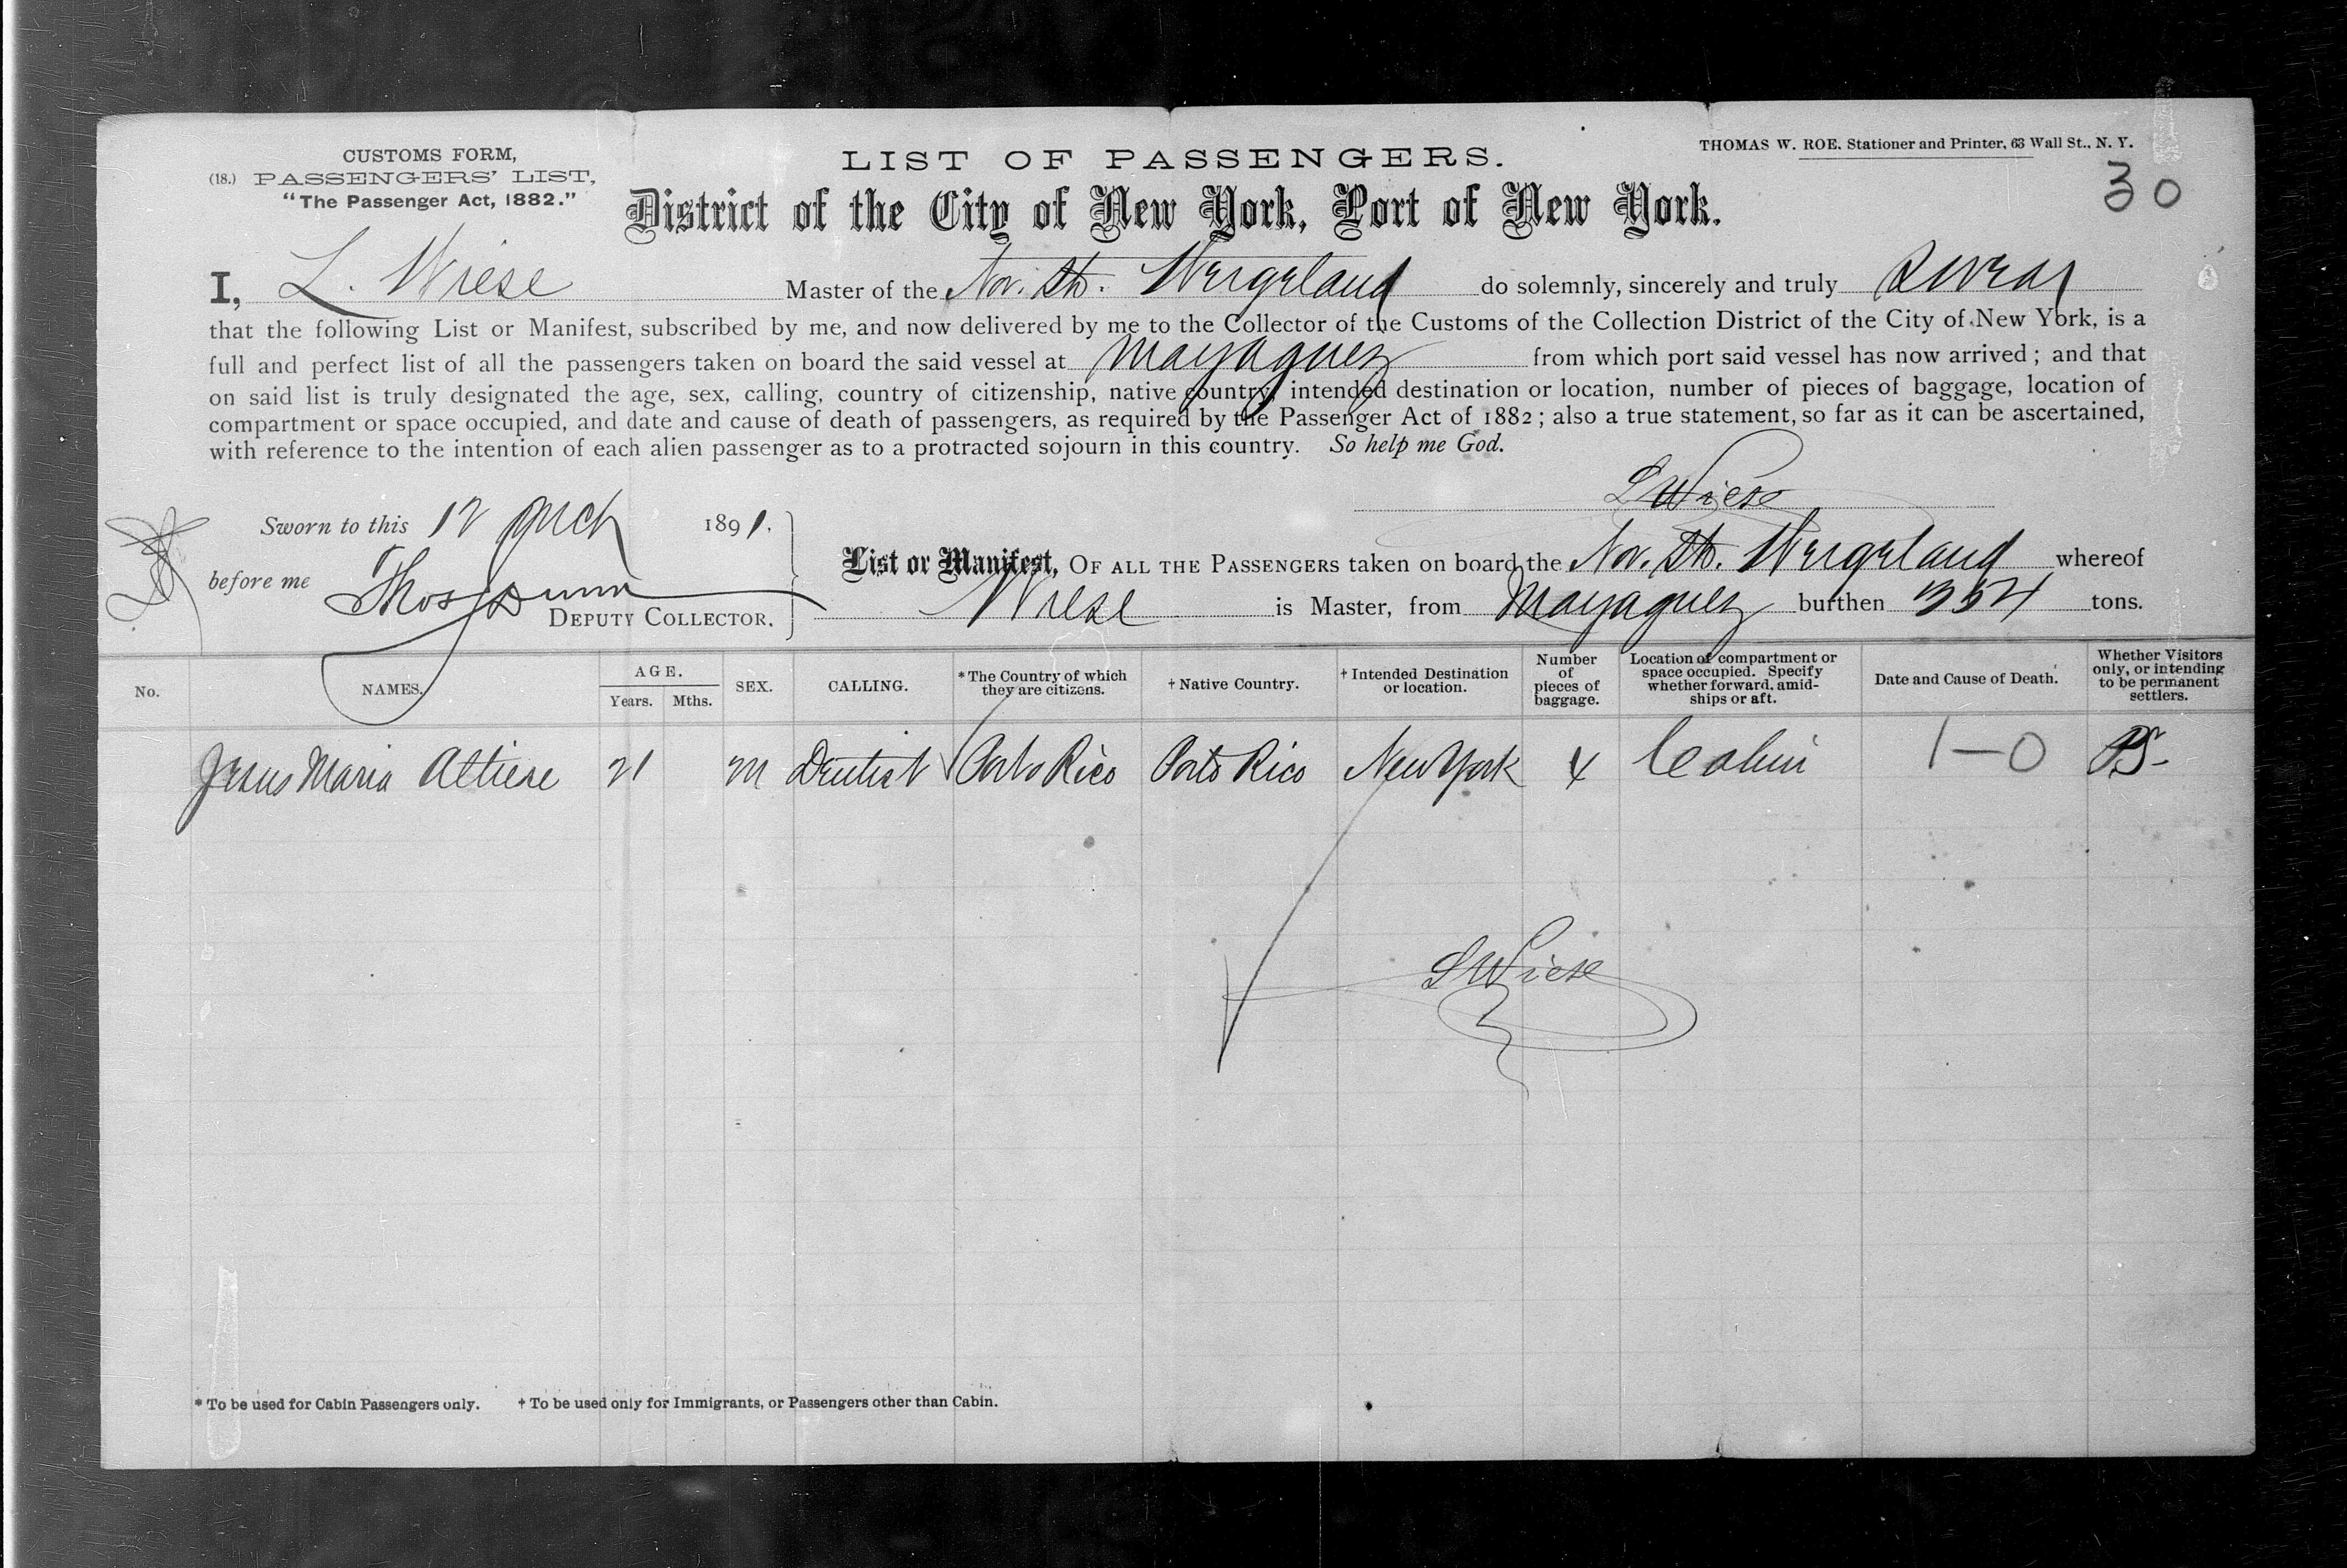 CUSTOMS FORM,
(18.) PASSENGERS' LIST,
"The Passenger Act, 1882."
LIST OF PASSENGERS.
THOMAS W. ROE. Stationer and Printer, 63 Wall St., N. Y.
30
District of the City of New York, Port of New York.
I, L. Wiese Master of the Nor. Str. Wergeland do solemnly, sincerely and truly swear
that the following List or Manifest, subscribed by me, and now delivered by me to the Collector of the Customs of the Collection District of the City of New York, is a
full and perfect list of all the passengers taken on board the said vessel at Mayaguez from which port said vessel has now arrived; and that
on said list is truly designated the age, sex, calling, country of citizenship, native country, intended destination or location, number of pieces of baggage, location of
compartment or space occupied, and date and cause of death of passengers, as required by the Passenger Act of 1882; also a true statement, so far as it can be ascertained,
with reference to the intention of each alien passenger as to a protracted sojourn in this country. So help me God.
L Wiese
Sworn to this 12 Mch 1891.
before me Thos Dunn
DEPUTY COLLECTOR.
List or Manifest, OF ALL THE PASSENGERS taken on board the Nor. Str. Wergeland whereof
Wiese is Master, from Mayaguez burthen 354 tons.
No. NAMES. AGE. Years. Mths. SEX. CALLING. *The Country of which they are citizens. † Native Country. † Intended Destination or location. Number of pieces of baggage. Location of compartment or space occupied. Specify whether forward, amidships or aft. Date and Cause of Death. Whether Visitors only, or intending to be permanent settlers.
Jesus Maria Altiere 21 M Dentist Porto Rico Porto Rico New York 4 Cabin 1-0
L Wiese
* To be used for Cabin Passengers only. † To be used only for Immigrants, or Passengers other than Cabin.